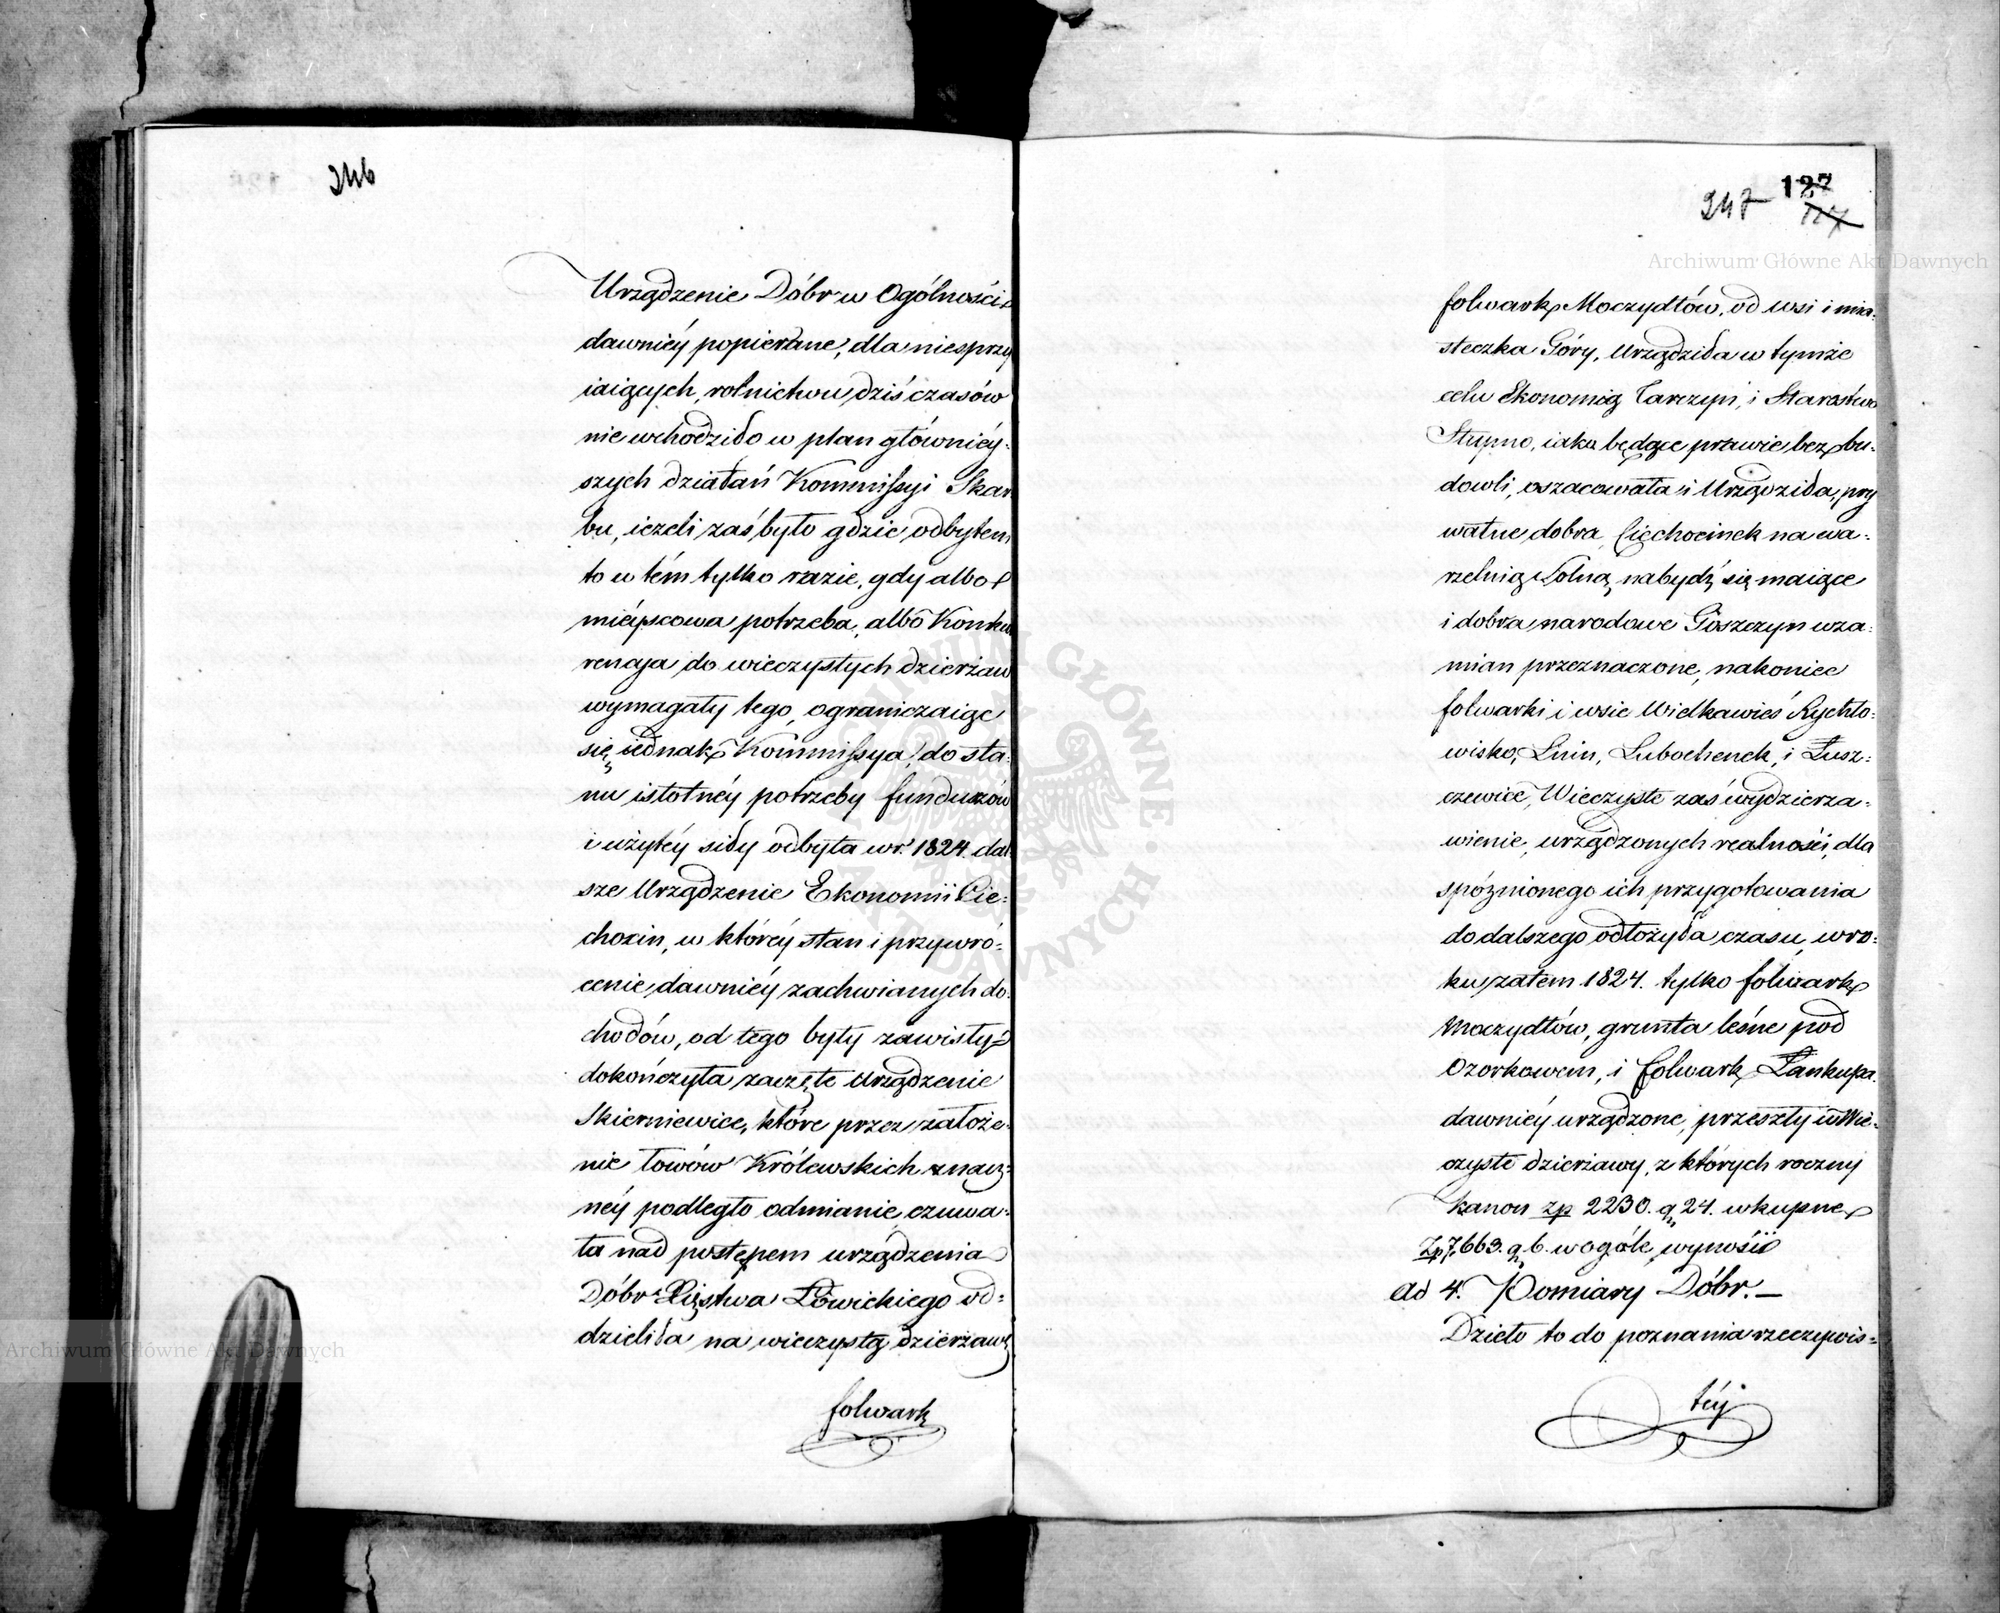 246
Urządzenie Dóbr w Ogólności
dawniéy popierane, dla niesprzy
iaiących, rolnictwu dziś czasów
nie wchodziło w plan główniéy-
szych działań Kommissyi Skar
bu, ieżeli zaś było gdzie odbytem
to w tém tylko razie, gdy albo
mieyscowa potrzeba, albo Konku
rencya do wieczystych dzierżaw
wymagały tego, ograniczaiąc
się iednak Kommissya do sta-
nu istotnéy potrzeby funduszów
i użytéy siły odbyła w r. 1824 dal
sze Urządzenie Ekonomii Cie-
chocin, w któréy stan i przywró-
cenie dawniéy zachwianych do-
chodów, od tego były zawisły
dokończyła zaczęte Urządzenie
Skierniewice, które przez założe-
nie łowów Królewskich znacz-
néy podległo odmianie, czuwa-
ła nad postępem urządzenia
Dóbr Xięstwa Łowickiego od-
dzieliła na wieczystą dzierżawę
folwark
247 127
117
folwark Moczydłów, od wsi i mia-
steczka Góry, Urządziła w tymże
celu Ekonomią Tarczyn, i Starostwo
Słupno, iako będące prawie bez bu-
dowli, oszacowała i Urządziła, pry
watne dobra Ciechocinek na wa-
rzelnią Solną nabydź się maiące
i dobra narodowe Goszczyn w za-
mian przeznaczone, nakoniec
folwarki i wsie Wielkawieś Rychło-
wisko, Lnin, Lubochenek, i Łusz-
czewice, Wieczyste zaś wydzierża-
wienie, urządzonych realności, dla
spóźnionego ich przygotowania
do dalszego odłożyła czasu, w ro-
ku zatem 1824. tylko folwark
Moczydłów, grunta leśne pod
Ozorkowem, i folwark Łankupa
dawniéy urządzone, przeszły w Wie-
czyste dzierżawy, z których roczny
kanon zp 2230. g 24. wkupne
Zp 7,663. g 6. wogóle wynosił
Ad 4. Pomiary Dóbr. —
Dzieło to do poznania rzeczywis-
téy
Archiwum Główne Akt Dawnych
Archiwum Główne Akt Dawnych